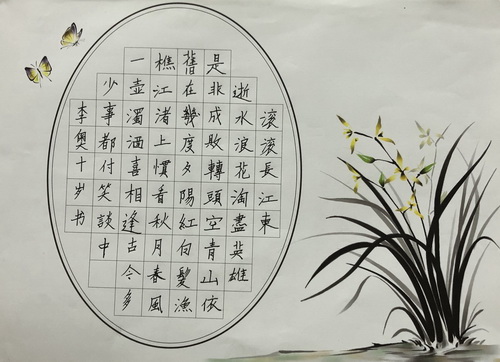 滾滾長江東
逝水浪花淘盡英雄
是非成敗轉頭空青山依
舊在幾度夕陽紅白髮漁
樵江渚上慣看秋月春風
一壺濁酒喜相逢古今多
少事都付笑談中
李奥十岁书